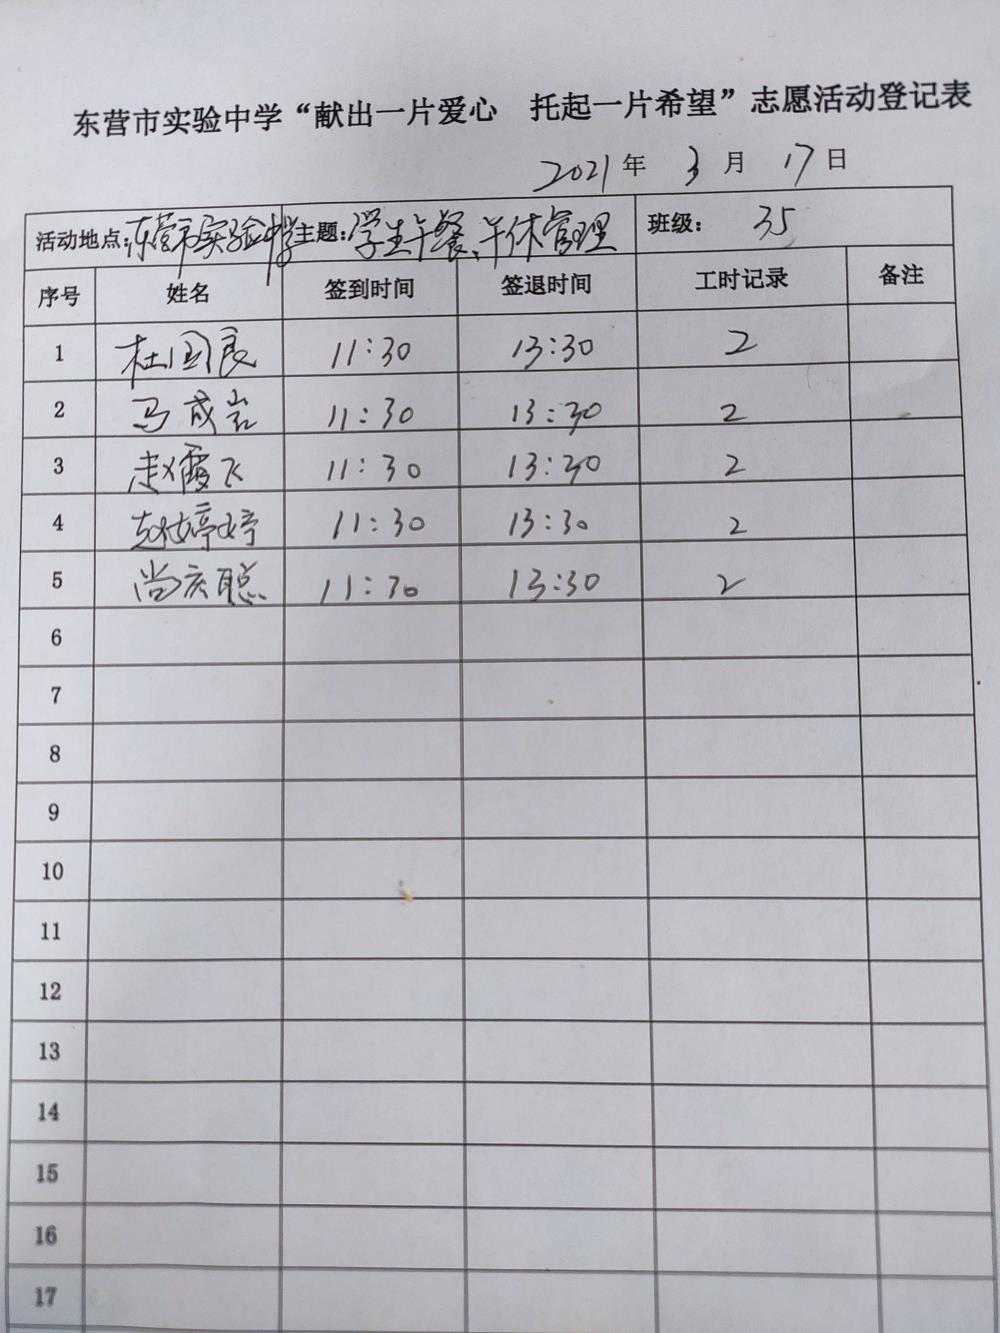 东营市实验中学“献出一片爱心 托起一片希望”志愿活动登记表
2021年 3月 17日
活动地点:东营市实验中学 主题:学生午餐、午休管理 班级: 35
序号 姓名 签到时间 签退时间 工时记录 备注
1 杜国良 11:30 13:30 2
2 马成岩 11:30 13:30 2
3 赵霞飞 11:30 13:30 2
4 赵婷婷 11:30 13:30 2
5 尚庆聪 11:30 13:30 2
6
7
8
9
10
11
12
13
14
15
16
17